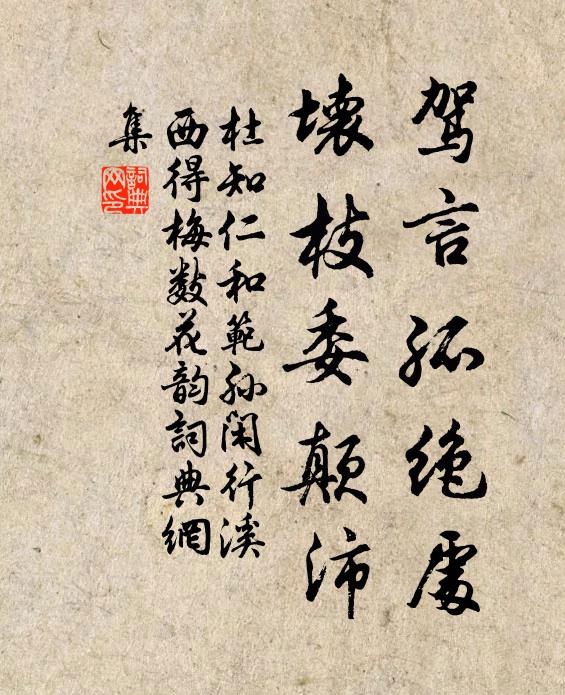 驾言孤绝處
壊枝委颠沛
杜知仁和範孙閑行溪
西得梅数花韵詞典網
集
詞典
网印